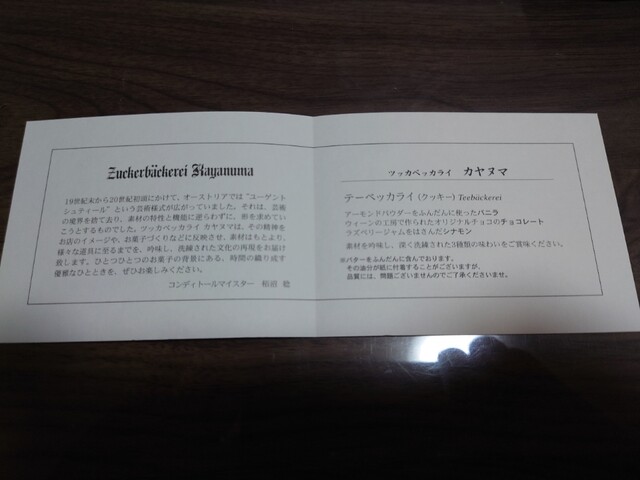 Zuckerbäckerei Kayanuma
19世紀末から20世紀初頭にかけて、オーストリアでは"ユーゲント
シュティール"という芸術様式が広がっていました。それは、芸術
の境界を捨て去り、素材の特性と機能に逆らわずに、形を求めてい
こうとするものでした。ツッカベッカライ カヤヌマは、その精神を
お店のイメージや、お菓子づくりなどに反映させ、素材はもとより、
様々な道具に至るまでを、吟味し、洗練された文化の再現をお届け
致します。ひとつひとつのお菓子の背景にある、時間の織り成す
優雅なひとときを、ぜひお楽しみください。
コンディトールマイスター 栢沼 稔
ツッカベッカライ カヤヌマ
テーベッカライ(クッキー) Teebäckerei
アーモンドパウダーをふんだんに使ったバニラ
ウィーンの工房で作られたオリジナルチョコのチョコレート
ラズベリージャムをはさんだシナモン
素材を吟味し、深く洗練された3種類の味わいをご賞味ください。
※バターをふんだんに含んでおります。
その油分が紙に付着することがございますが、
品質には、問題ございませんのでご了承くださいませ。